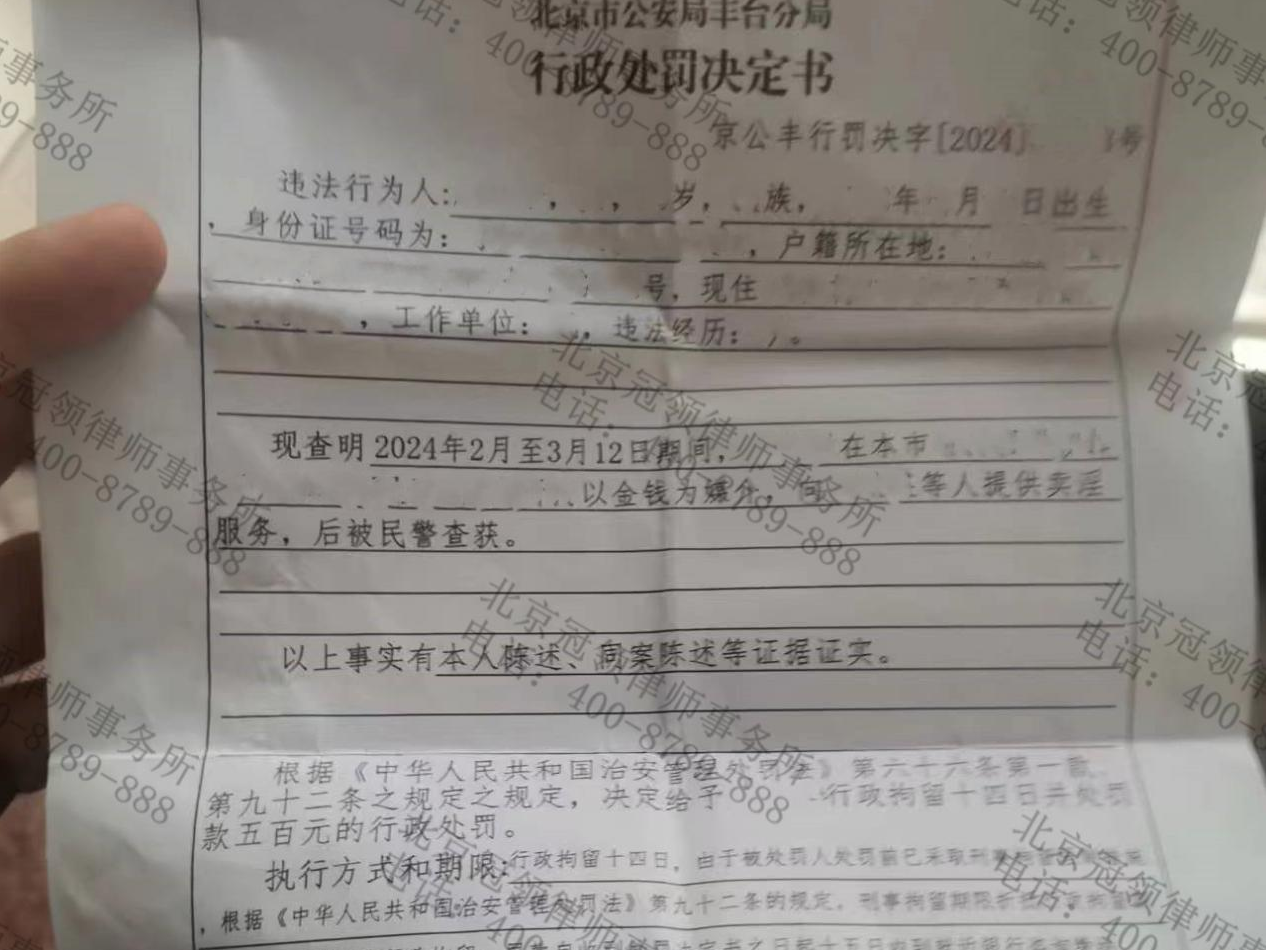 北京市公安局丰台分局
行政处罚决定书
京公丰行罚决字[2024] 号
违法行为人: , , 岁, 族, 年 月 日出生
, 身份证号码为: , 户籍所在地:
号, 现住
, 工作单位: , 违法经历: 。
现查明2024年2月至3月12日期间, 在本市
以金钱为媒介, 向 等人提供卖淫
服务, 后被民警查获。
以上事实有本人陈述、同案陈述等证据证实。
根据《中华人民共和国治安管理处罚法》第六十六条第一款、
第九十二条之规定之规定, 决定给予 行政拘留十四日并处罚
款五百元的行政处罚。
执行方式和期限:行政拘留十四日, 由于被处罚人处罚前已采取刑事
, 根据《中华人民共和国治安管理处罚法》第九十二条的规定, 刑事拘留期限折抵
之日起十五日内到
北京冠领律师事务所
电话: 400-8789-888